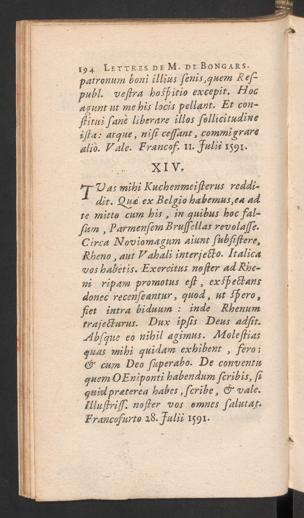 194 LETTRES DE M. DE BONGARS.
patronum boni illius senis, quem Res-
publ. vestra hospitio excepit. Hoc
agunt ut me his locis pellant. Et con-
stitui sanè liberare illos sollicitudine
ista: atque, nisi cessant, commigrare
aliò. Vale. Francof. 11. Julii 1591.
XIV.
TVas mihi Kuchenmeisterus reddi-
dit. Quæ ex Belgio habemus, ea ad
te mitto cum his, in quibus hoc fal-
sum, Parmensem Brussellas revolasse.
Circa Noviomagum aiunt subsistere,
Rheno, aut Vahali interjecto. Italica
vos habetis. Exercitus noster ad Rhe-
ni ripam promotus est, exspectans
donec recenseantur, quod, ut spero,
fiet intra biduum: inde Rhenum
trajecturus. Dux ipsis Deus adsit.
Absque eo nihil agimus. Molestias
quas mihi quidam exhibent, fero;
& cum Deo superabo. De conventu
quem OEniponti habendum scribis, si
quid præterea habes, scribe, & vale.
Illustriss. noster vos omnes salutat.
Francofurto 28. Julii 1591.